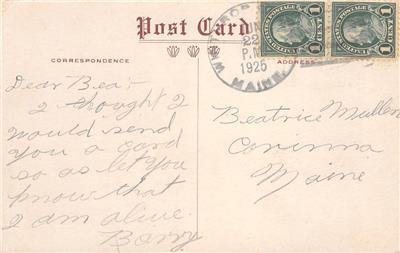 Post Card
CORRESPONDENCE
ADDRESS
WINTHROP
JUN
22
P.M.
1925
MAINE.
UNITED STATES POSTAGE
1 CENT 1
UNITED STATES POSTAGE
1 CENT 1
Dear Bea:-
I thought I
would send
you a card
so as let you
know that
I am alive.
Barry
Beatrice Mullen
Corinna
Maine